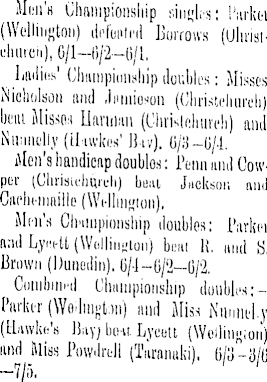 Men's Championship singles: Parker
(Wellington) defeated Borrows (Christ-
church), 6/1—6/2—6/1.
Ladies' Championship doubles: Misses
Nicholson and Jamieson (Christchurch)
beat Misses Harman (Christchurch) and
Nunnelly (Hawkes' Bay). 6/3—6/4.
Men's handicap doubles: Penn and Cow-
per (Christchurch) beat Jackson and
Cachemaille (Wellington).
Men's Championship doubles: Parker
and Lycett (Wellington) beat R. and S.
Brown (Dunedin). 6/4—6/2—6/2.
Combined Championship doubles:—
Parker (Wellington) and Miss Nunnelly
(Hawke's Bay) beat Lycett (Wellington)
and Miss Powdrell (Taranaki). 6/3—3/6
—7/5.